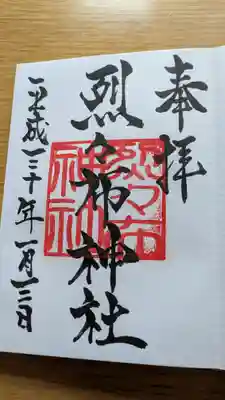 奉拝
烈々布神社
烈々布神社
平成三十年一月三日